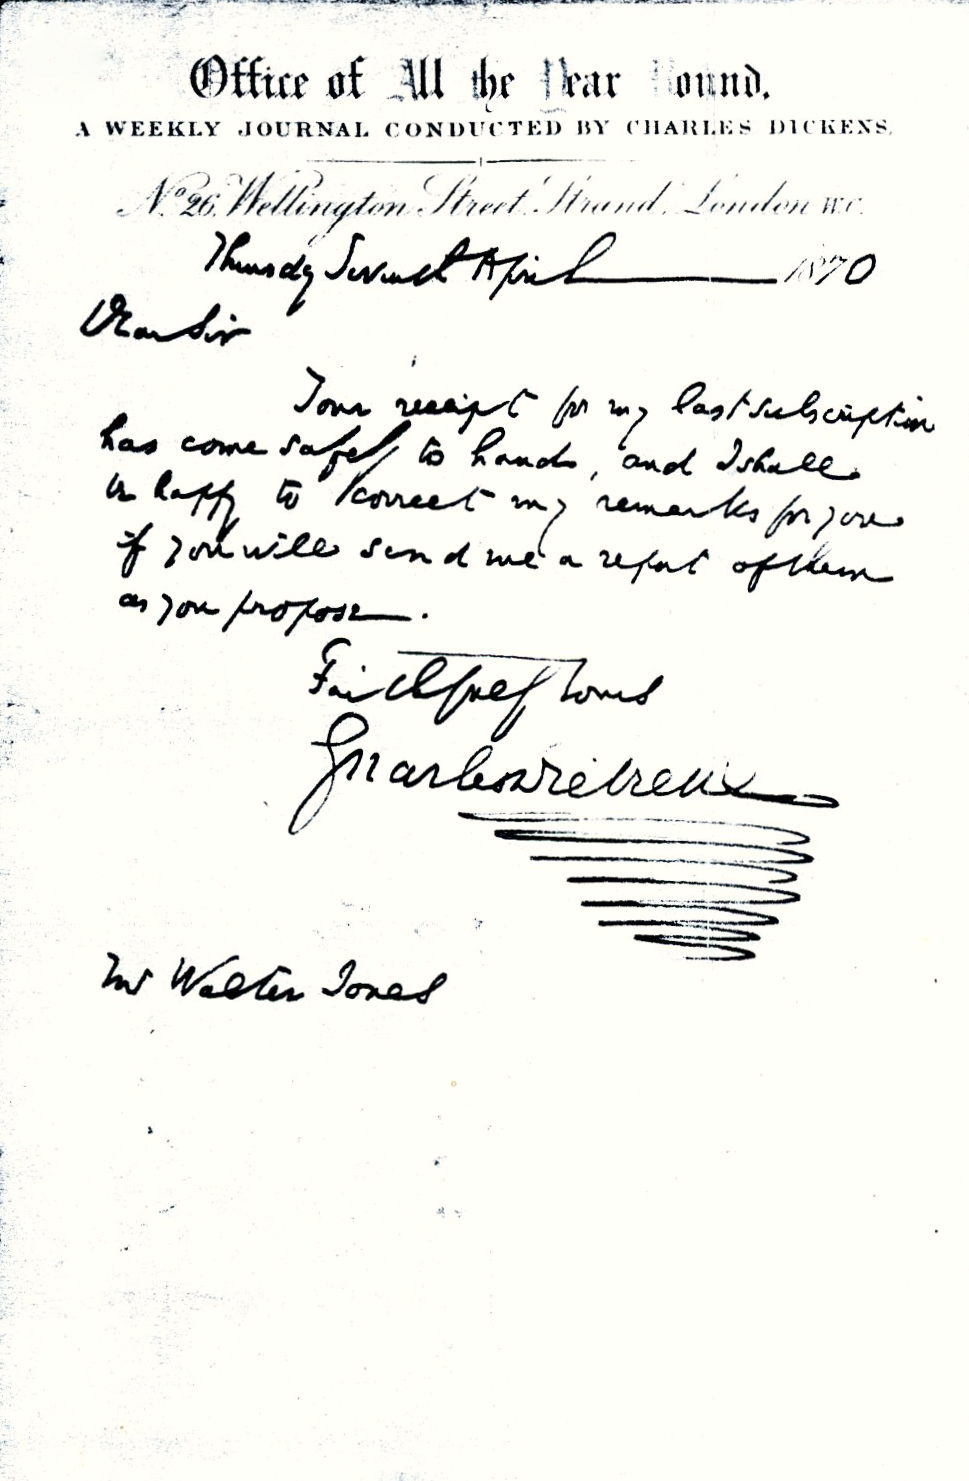 Office of All the Year Round.
A WEEKLY JOURNAL CONDUCTED BY CHARLES DICKENS.
No. 26, Wellington Street, Strand, London W.C.
Thursday Seventh April 1870
Dear Sir
Your receipt for my last subscription
has come safely to hand, and I shall
be happy to correct my remarks for you
if you will send me a report of them
as you propose.
Faithfully Yours
Charles Dickens
Mr Walter Jones